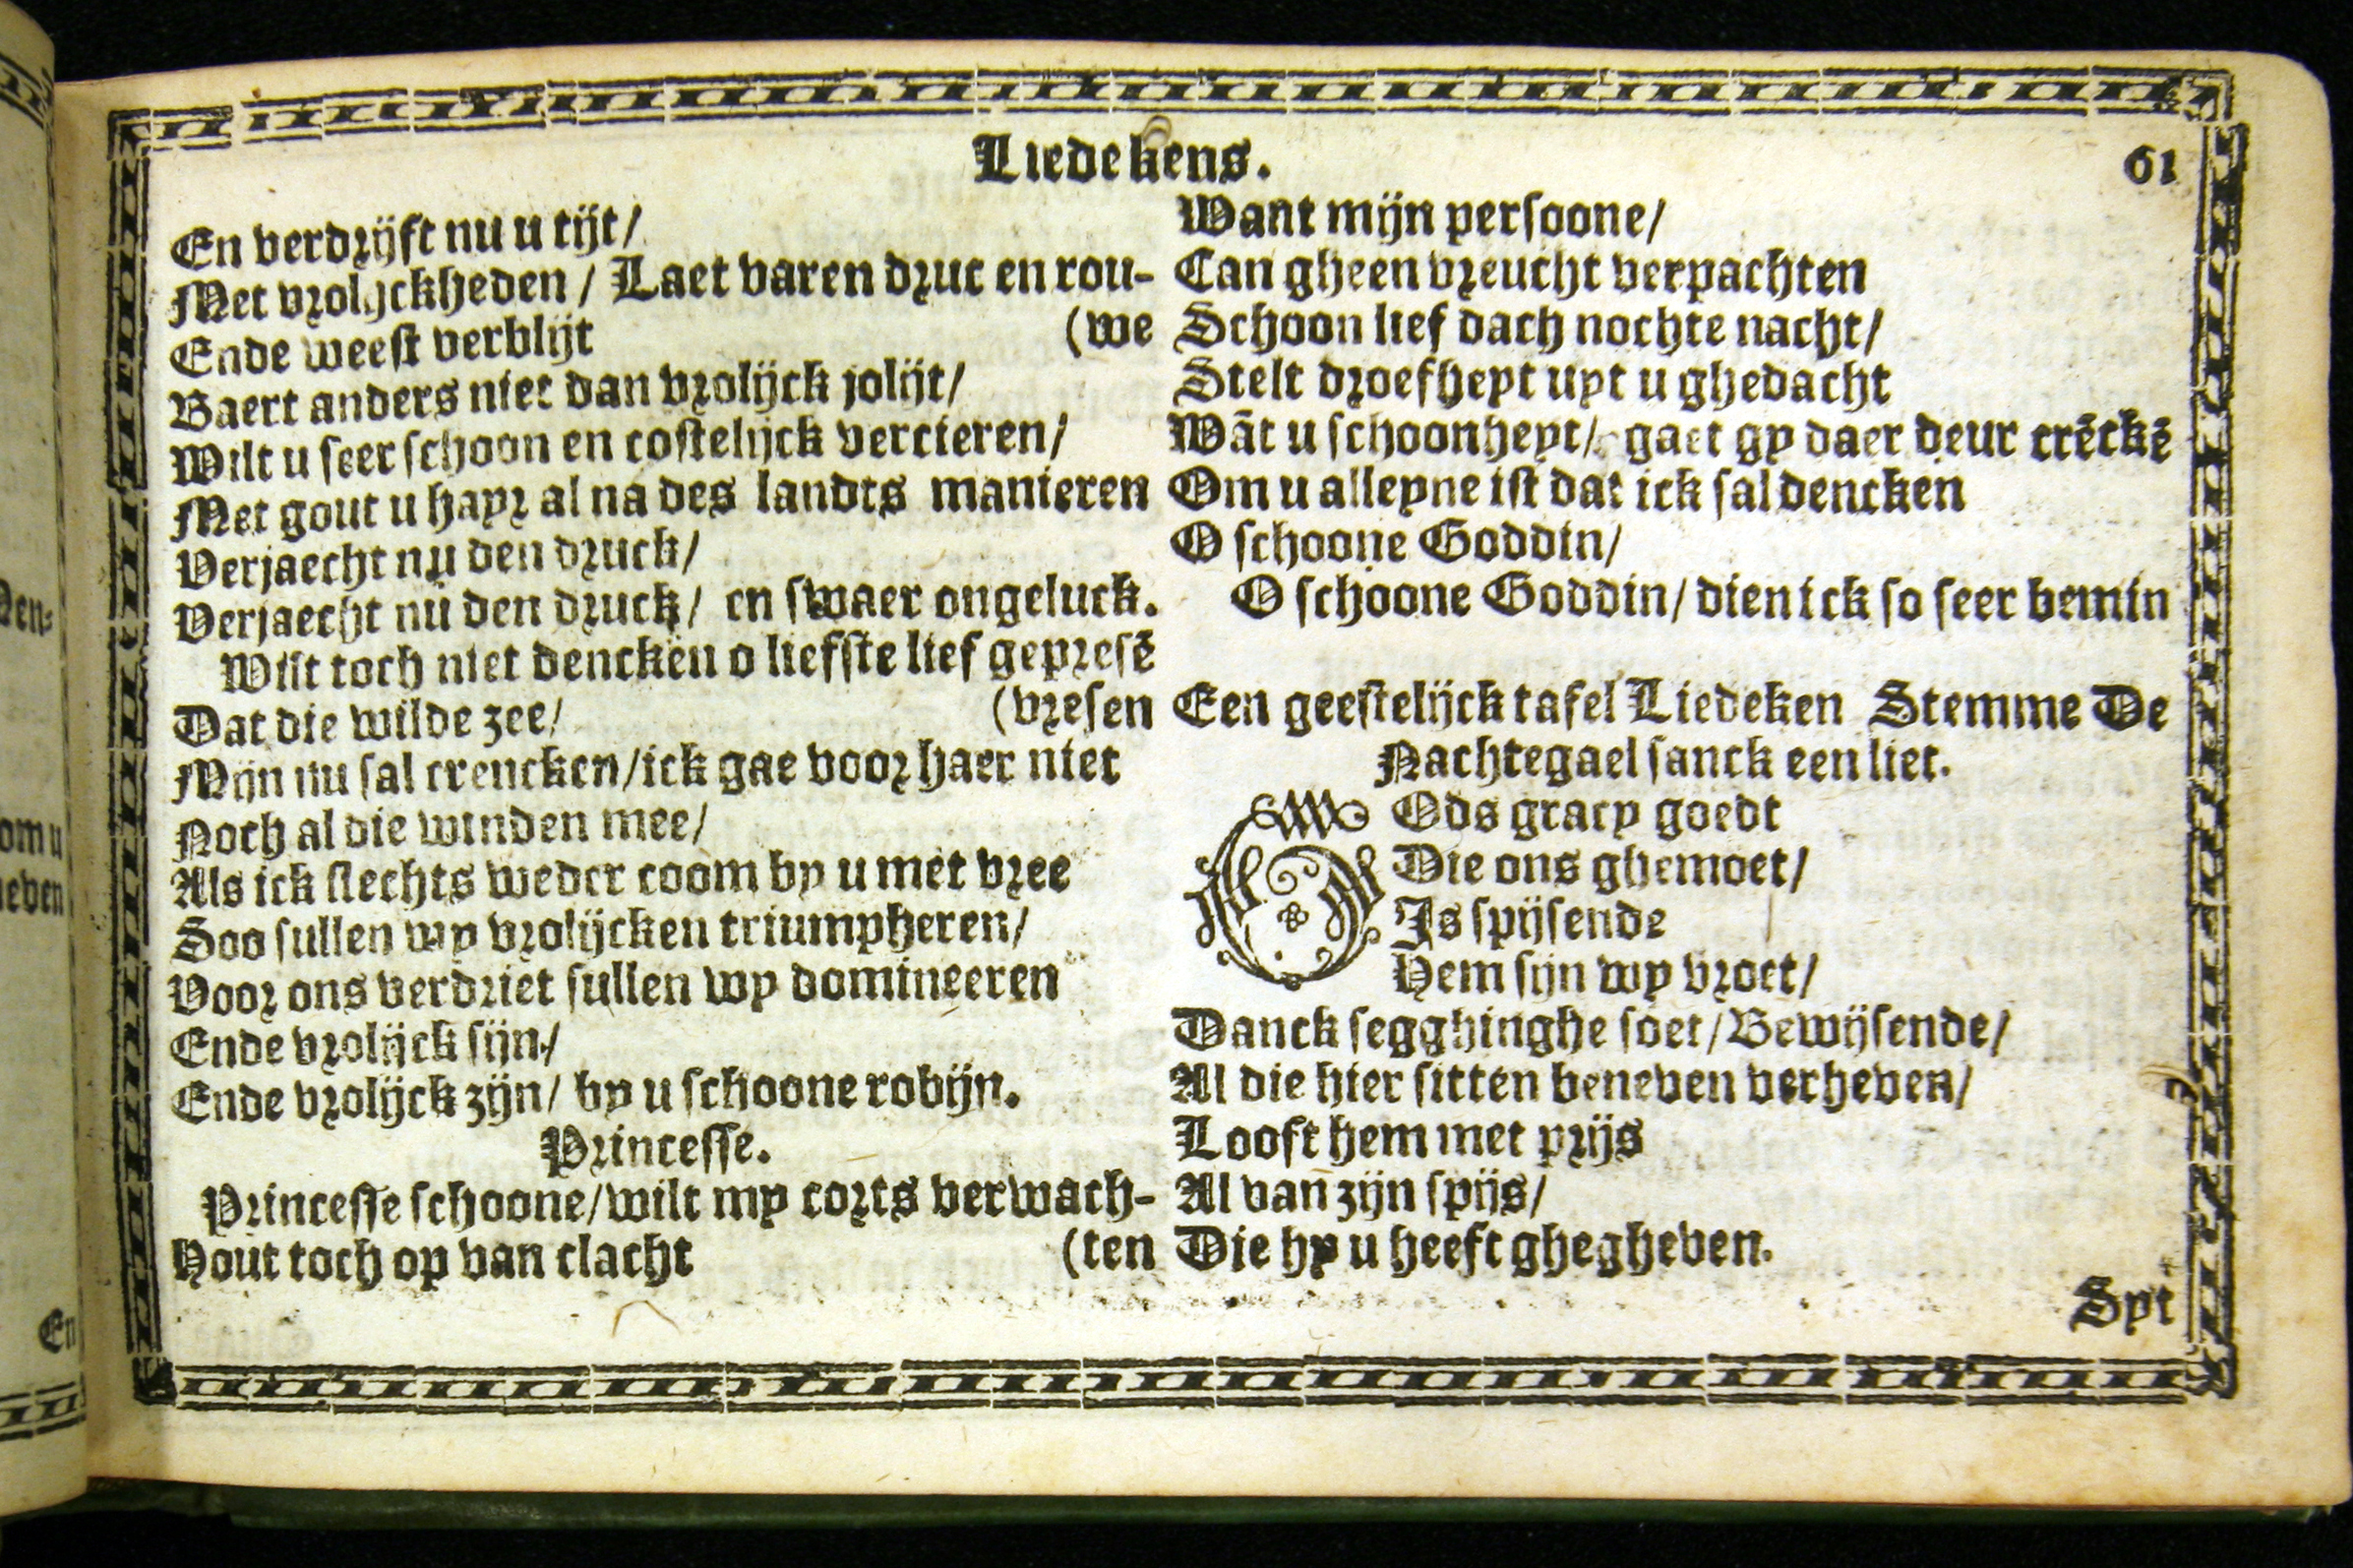 Liedekens.
61
En verdrijft nu u tijt/
Met vrolijckheden / Laet varen druc en rou-
Ende weest verblijt (we
Baert anders niet dan vrolijck jolijt/
Wilt u seer schoon en costelijck vercieren/
Met gout u hayr al na des landts manieren
Verjaecht nu den druck/
Verjaecht nu den druck/ en swaer ongeluck.
Wilt toch niet dencken o liefste lief gepresē
Dat die wilde zee/ (vresen
Mijn nu sal crencken/ick gae voor haer niet
Noch al die winden mee/
Als ick slechts weder coom by u met vree
Soo sullen wy vrolijcken triumpheren/
Voor ons verdriet sullen wy domineeren
Ende vrolijck sijn/
Ende vrolijck zijn/ by u schoone robijn.
Princesse.
Princesse schoone/wilt my corts verwach-
Hout toch op van clacht (ten
Want mijn persoone/
Can gheen vreucht verpachten
Schoon lief dach nochte nacht/
Stelt droefheyt uyt u ghedacht
Wāt u schoonheyt/ gaet gy daer deur crēckē
Om u alleyne ist dat ick sal dencken
O schoone Goddin/
O schoone Goddin/ dien ick so seer bemin
Een geestelijck tafel Liedeken Stemme De
Nachtegael sanck een liet.
GOds gracy goedt
Die ons ghemoet/
Is spijsende
Hem sijn wy vroet/
Danck segghinghe soet/Bewijsende/
Al die hier sitten beneven verheven/
Looft hem met prijs
Al van zijn spijs/
Die hy u heeft ghegheven.
Spt
Den-
om u
neven
En